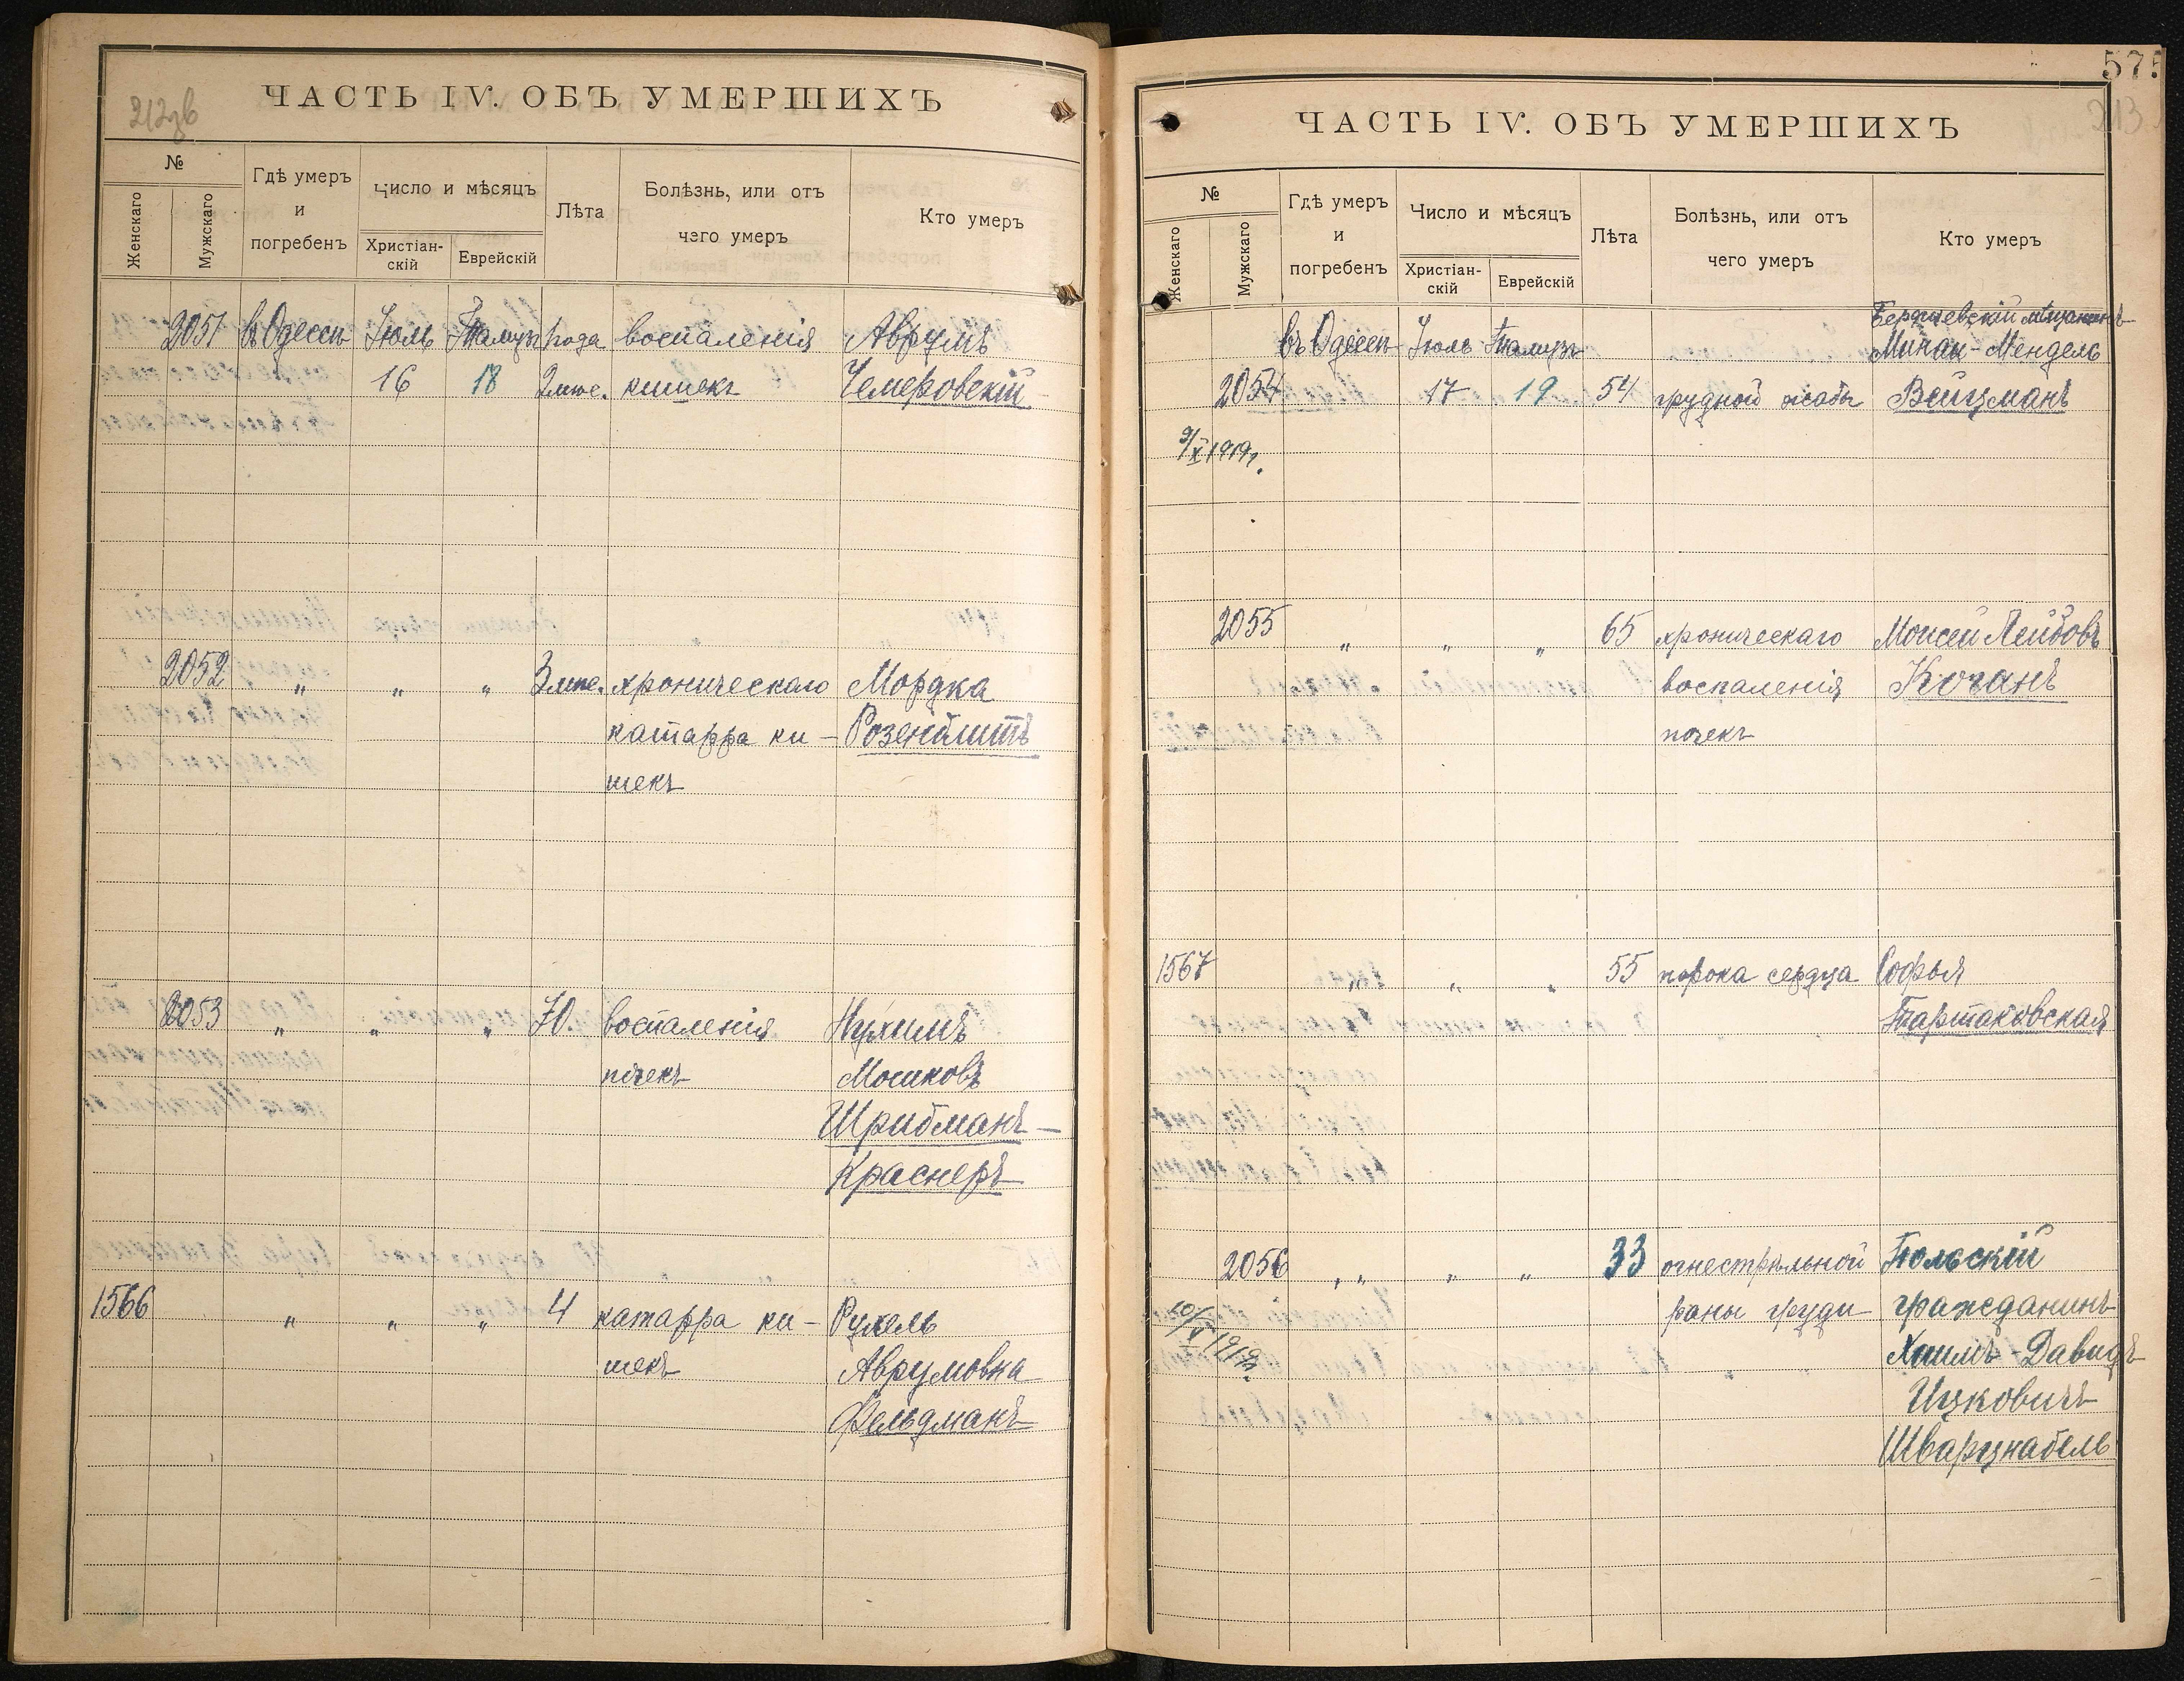 212 зв
ЧАСТЬ IV. ОБЪ УМЕРШИХЪ
№
Женскаго
Мужскаго
Гдѣ умеръ
и
погребенъ
Число и мѣсяцъ
Христіан-
скій
Еврейскій
Лѣта
Болѣзнь, или отъ
чего умеръ
Кто умеръ
2051 въ Одессѣ Іюль Тамузъ 1 года воспаленія Аврумъ
16 18 2 мѣс. кишекъ Чемеровскій
2052 " " " 3 мѣс. хроническаго Мордка
катарра ки- Розенблитъ
шекъ
2053 " " " 70. воспаленія Нухимъ
почекъ Мошковъ
Шрибманъ-
Краснеръ
1566 " " " 4 катарра ки- Рухель
шекъ Аврумовна
Фельдманъ
575
213
ЧАСТЬ IV. ОБЪ УМЕРШИХЪ
№
Женскаго
Мужскаго
Гдѣ умеръ
и
погребенъ
Число и мѣсяцъ
Христіан-
скій
Еврейскій
Лѣта
Болѣзнь, или отъ
чего умеръ
Кто умеръ
Бердичевскій мѣщанинъ
въ Одессѣ Іюль Тамузъ Михаи-Мендель
2054 17 19 54 грудной жабы Вейцманъ
9/X 1919 г.
2055 " " " 65 хроническаго Моисей Лейбовъ
воспаленія Коганъ
почекъ
1567 " " " 55 порока сердца Софья
Тартаковская
2056 " " " 33 огнестрѣльной Польскій
раны груди гражданинъ
10/V 1919 г. Хаимъ-Давидъ
Ицковичъ
Шварцнабель